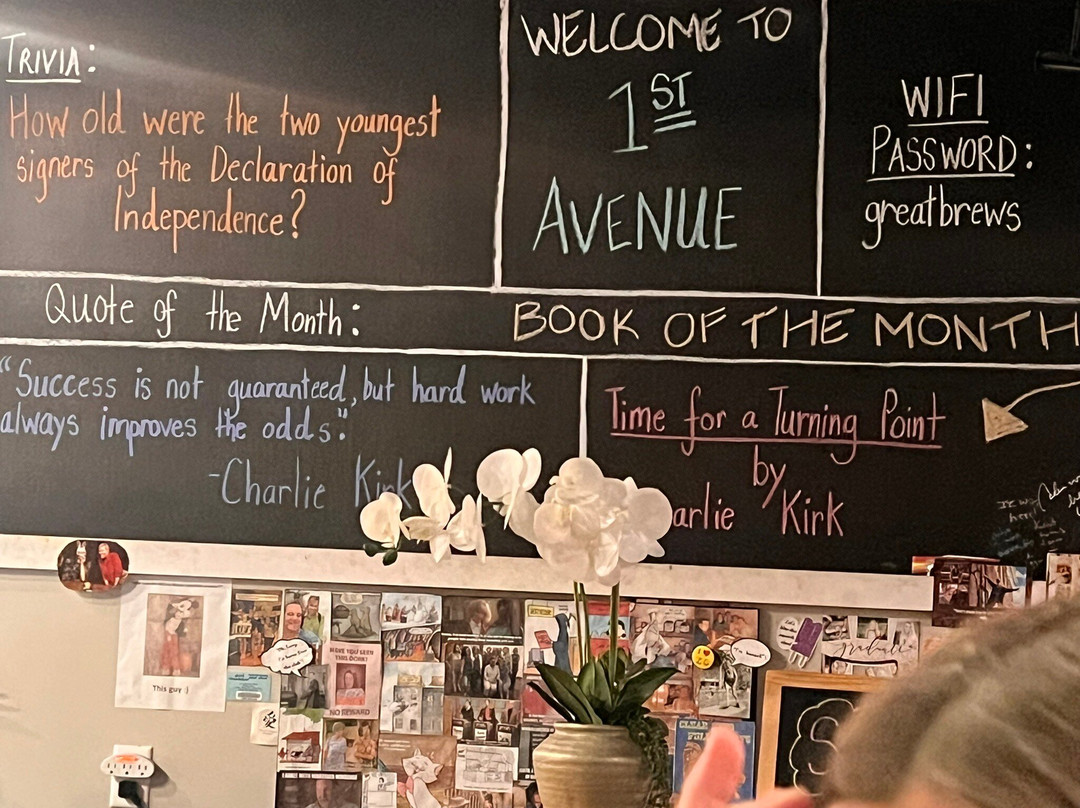 TRIVIA:
How old were the two youngest
signers of the Declaration of
Independence?
WELCOME TO
1ST
AVENUE
WIFI
PASSWORD:
greatbrews
Quote of the Month:
"Success is not guaranteed, but hard work
always improves the odds."
-Charlie Kirk
BOOK OF THE MONTH
Time for a Turning Point
by
arlie Kirk
This guy :)
HAVE YOU SEEN
THIS DORK?
NO REWARD
graduate